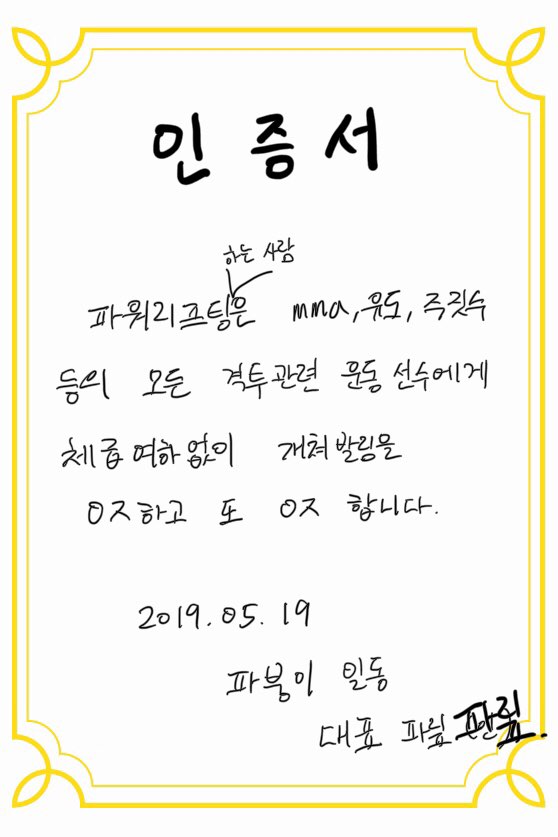 인증서
하는 사람
파워리프팅은 mma, 유도, 주짓수
등의 모든 격투관련 운동 선수에게
체급여하없이 개쳐발림을
ㅇㅈ하고 또 ㅇㅈ 합니다.
2019.05.19
파붕이 일동
대표 파륖